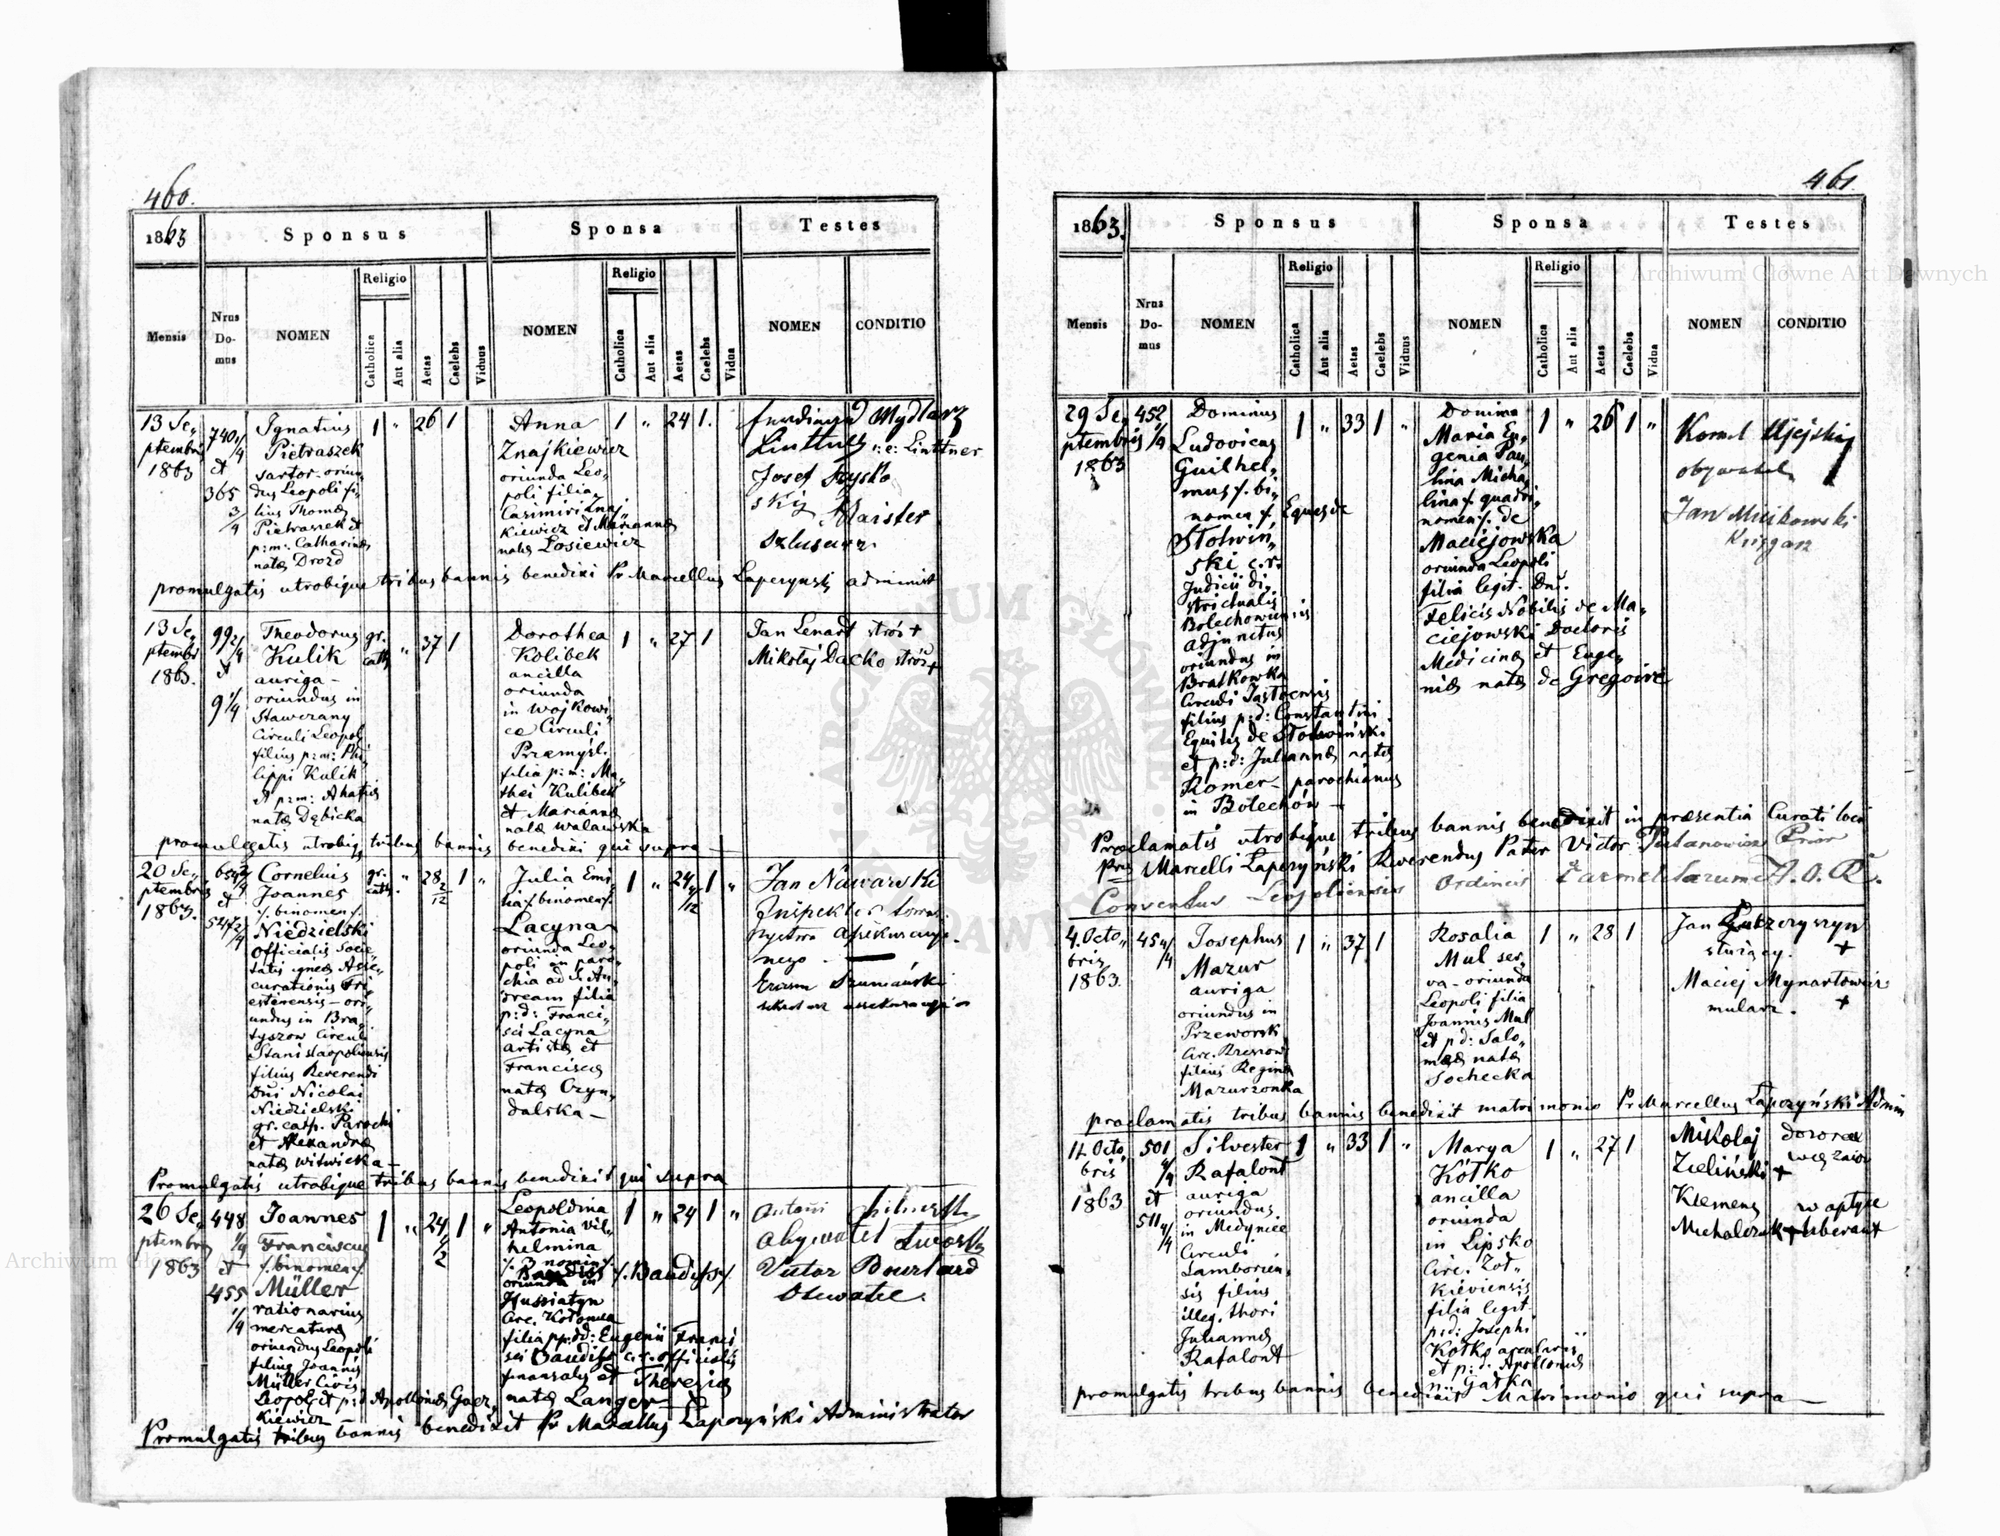 460.
1863
Sponsus
Sponsa
Testes
Mensis
Nrus
Do-
mus
NOMEN
Religio
Catholica
Aut alia
Aetas
Caelebs
Viduus
NOMEN
Religio
Catholica
Aut alia
Aetas
Caelebs
Vidua
NOMEN
CONDITIO
13 Se„
ptembris
1863
740 1/4
et
365
3/4
Ignatius
Pietraszek
sartor. oriun„
dus Leopoli fi„
lius Thomæ
Pietraszek et
p:m: Catharinæ
natæ Drozd
1 „ 26 1
Anna
Znajkiewicz
oriunda Leo„
poli filia
Casimiri Znaj„
kiewicz et Mariannæ
natæ Losiewicz
1 „ 24 1.
Mydlarz
Linttner
Josef
Majster
promulgatis utrobique tribus bannis benedixi Pr Marcellus Łapczyński administ
13 Se„
ptembr
1863.
99 2/4
et
9 1/4
Theodorus
Kulik
auriga –
oriundus in
Stawczany
Circuli Leopol
filius p:m: Phi„
lippi Kulik
et p:m: Ahafiæ
natæ Dębicka
gr.
cath. „ 37 1
Dorothea
Kolibek
ancilla
oriunda
in Wojkowi„
ce Circuli
Przemyśl.
filia p:m: Ma„
thei Kulibek
et Mariannæ
natæ Walawska
1 „ 27 1
Jan Lenart stróż +
Mikołaj Dacko stróż +
promulgatis utrobiq tribus bannis benedixi qui supra —
20 Se„
ptembris
1863.
et
Cornelius
Joannes
/. binomen /.
Niedzielski
Officialis Socie„
tatis igneæ Asse„
curationis Tri„
estinensis – ori„
undus in Bra„
tyszow Circuli
Stanislaopoliensis
filius Reverendi
Dni Nicolai
Niedzielski
gr. cath. Parochi
et Alexandræ
natæ Witwicka –
gr.
cath. „ 28 2/12 1 „
Julia Emi„
lia /. binomen /.
Lacyna
oriunda Leo„
poli in paro„
chia ad S. An„
dream filia
p:d: Franci„
sci Lacyna
artistæ et
Franciscæ
natæ Czyn„
dalska –
1 „ 1 „
Jan Nawarski
Inspektor
Promulgatis utrobique tribus bannis benedixit qui supra
26 Se„
ptembris
1863
448
1/4
et
455
1/4
Joannes
Franciscus
/. binomen /.
Müller
rationarius
mercaturæ
oriundus Leopoli
filius Joannis
Müller Civis
Leopol et p:d Apolloniæ Gacz„
kiewicz
1 „ 24 1/2 1 „
Leopoldina
Antonia Vil„
helmina
/. 3 nomin /.
oriunda in /. Baudiss /.
Hussiatyn
Circ. Kołomea
filia pp:dd: Eugenii Franci
sci Baudiss c.r. officialis
finansalis et Theresiæ
natæ Langer –
1 „ 24 1 „
Antoni
Obywatel Lwowski
Victor
Obywatel
Promulgatis tribus bannis benedixit Pr Marcellus Łapczyński Administrator
461.
1863.
Sponsus
Sponsa
Testes
Mensis
Nrus
Do-
mus
NOMEN
Religio
Catholica
Aut alia
Aetas
Caelebs
Viduus
NOMEN
Religio
Catholica
Aut alia
Aetas
Caelebs
Vidua
NOMEN
CONDITIO
29 Se„
ptembris
1863
452
1/4
Dominus
Ludovicus
Guilhel„
mus /. bi„
nomen /. Eques de
Stotwiń„
ski c. r.
Judicii di„
strictualis
Bolechoviensis
adjunctus
oriundus in
Bratkowka
Circuli Jasloensis
filius p:d: Constantini
Equitis de Stotwiński
et p:d: Juliannæ natæ
Romer – parochianus
in Bolechów –
1 „ 33 1 „
Domina
Maria Eu„
genia Pau„
lina Micha„
lina /. quadri„
nomen /. de
Maciejowska
oriunda Leopoli
filia legit. Dni.
Felicis Nobilis de Ma„
ciejowski Doctoris
Medicinæ et Euge„
niæ natæ de Gregoire
1 „ 26 1 „
Kornel Ujejski
obywatel
Jan Milikowski
Księgarz
Proclamatis utrobique tribus bannis benedixit in præsentia Curati loci
Pris Marcelli Łapczyński Reverendus Pater Victor Prior
Conventus Leopoliensis Ordinis Carmelitarum A. O. R.
4. Octo„
bris
1863.
45 4/4
Josephus
Mazur
auriga
oriundus in
Przeworsk
Circ. Rzeszow
filius Reginæ
Mazurzonka
1 „ 37 1
Rosalia
Mul ser„
va – oriunda
Leopoli filia
Joannis Mul
et p:d: Salo„
meæ natæ
Sochecka
1 „ 28 1
Jan
służący. +
Maciej Mynartowicz
mularz. +
proclamatis tribus bannis benedixit matrimonio Pr Marcellus Łapczyński Admin
11. Octo„
bris
1863
501
4/4
et
511 4/4
Silvester
Rafalont
auriga
oriundus
in Medynice
Circuli
Samborien„
sis filius
illeg. thori
Juliannæ
Rafalont
1 „ 33 1 „
Marya
Kótko
ancilla
oriunda
in Lipsko
Circ. Żoł„
kieviensis
filia legit.
p:d: Josephi
Kotko
et p:d. Apolloniæ
Gałka
1 „ 27 1
Mikolaj
Zieliński +
Klemens w aptyce
Michalczuk + laborant
promulgatis tribus bannis benedixit Matrimonio qui supra —
Archiwum Główne Akt Dawnych
Archiwum Główne Akt Dawnych
ARCHIWUM GŁÓWNE AKT DAWNYCH